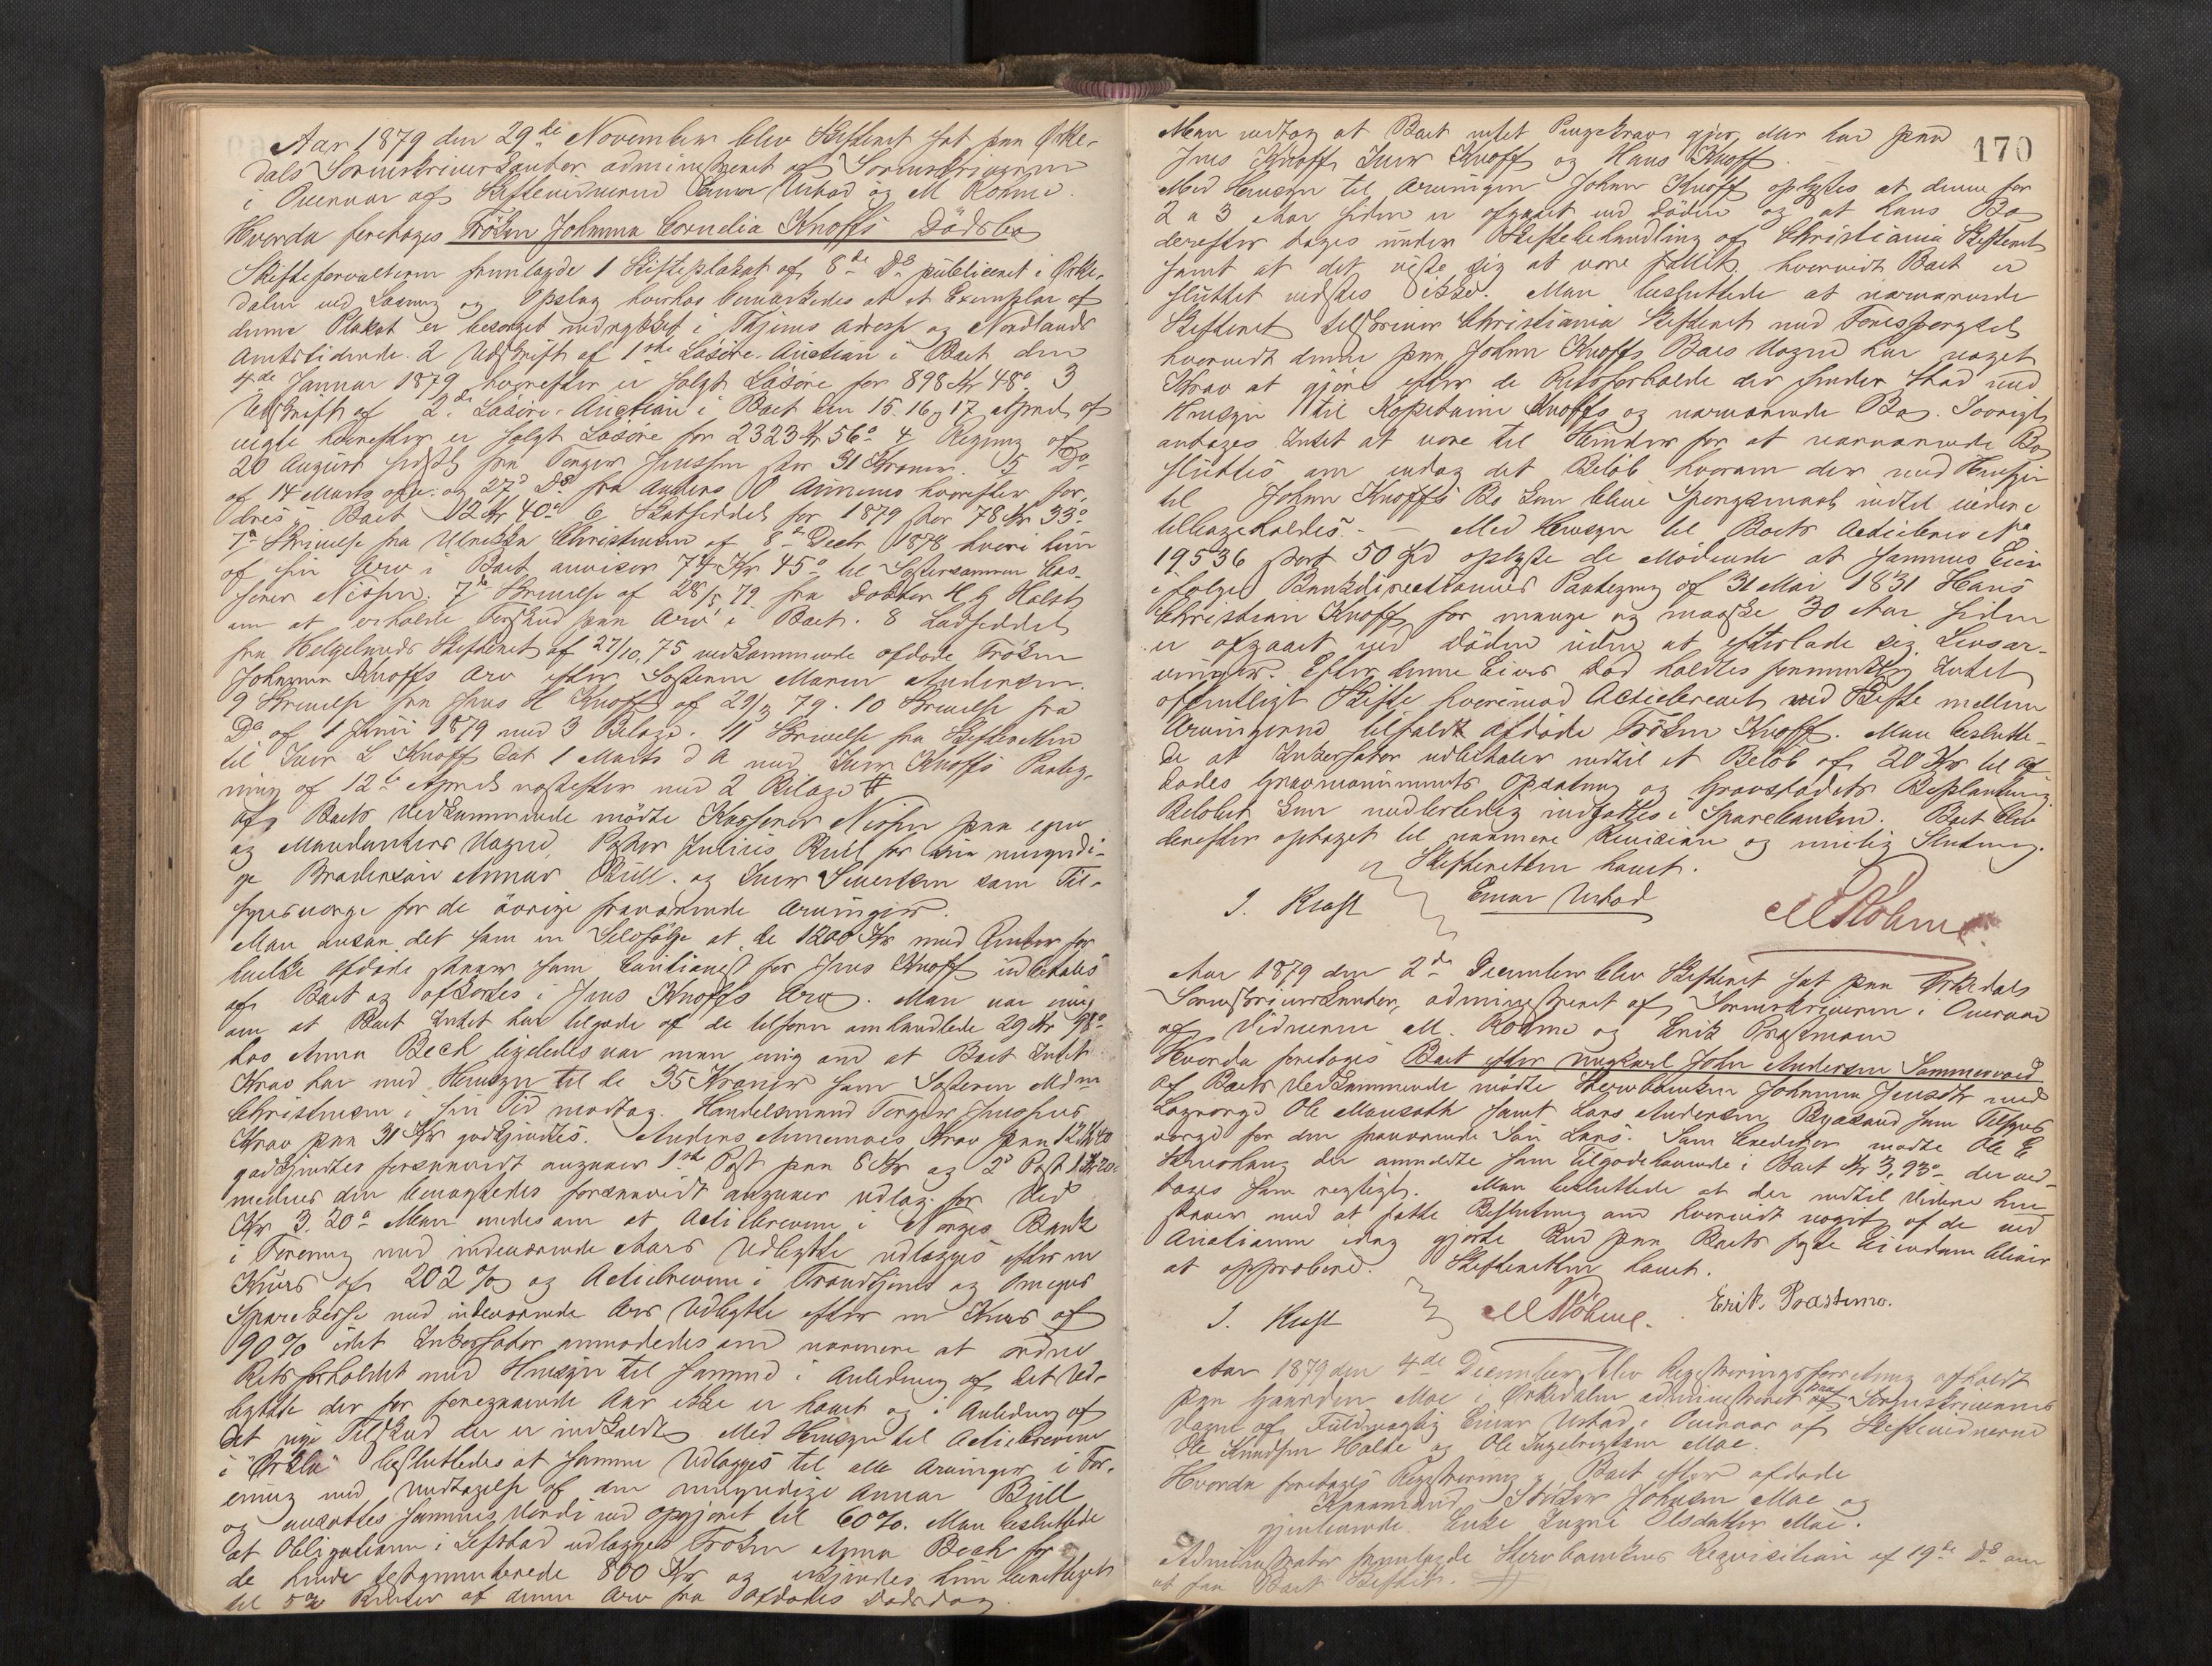 Aar 1879 den 29de November blev Skifteret sat paa Orke-
dals Sorenskriverkontor administreret af Sorenskriveren
i Overvær af Skiftevidnerne Einar Ustad og M Rohme.
Hvorda foretoges Frøken Johanna Cornelia Knoffs Dødsbo
Skifteforvalteren fremlagde 1 Skifteplakat af 8de Ds publiceret i Orke-
dalen ved Læsning og Opslag hvorhos bemærkedes at et Exemplar af
denne Plakat er besørget indrykket i Thjems Adresse og Nordlands
Amtstidende. 2 Udskrift af 1ste Løsøre-Auction i Boet den
4de Januar 1879 hvorefter er solgt Løsøre for 898 Kr 48ø 3
Udskrift af 2de Løsøre-Auction i Boet den 15. 16 og 17 April af
hvorefter er solgt Løsøre for 2323 Kr 56ø 4 Regning af
20 August sidstl fra Torger Jenssen stor 31 Kroner. 5 Do
af 14 Marts og 27de Ds fra Anders O hvorefter for-
dres i Boet 12 Kr 40ø 6 Skatseddel for 1879 stor 78 Kr 33ø
7a Skrivelse fra Ulrikka Christensen af 8de Decbr 1878 hvori hun
af sin Arv i Boet anviser 74 Kr 45ø til Søstersønnen Kas-
serer Nissen. 7b Skrivelse af 28/5 79 fra Doktor H. H Holst
om at erholde Forskud paa Arv i Boet. 8 Ladseddel
fra Helgelands Skifteret af 27/10 75 vedkommende afdøde Frøken
Johanna Knoffs Arv efter Søsteren Maren Andersen.
9 Skrivelse fra Jens H Knoff af 29/3 79. 10 Skrivelse fra
Do af 1 Juni 1879 med 3 Bilage. 11 Skrivelse fra Skifteretten
til Iver L Knoff dat 1 Marts d A med Iver Knoffs Paateg-
ning af 12te April næstefter med 2 Bilage #
Af Boets Vedkommende mødte Kasserer Nissen paa egne
og Mandanters Vegne, Julius Bull for sin umyndi-
ge Brodersøn Annar Bull. og Iver Sivertsen som Til-
synsværge for de øvrige fraværende Arvinger.
Man ansaa det som en Selvfølge at de 1200 Kr med Renter for
hvilke Afdøde staaer som Cautionist for Jens Knoff udbetales
af Boet og afkortes i Jens Knoffs Arv. Man var enig
om at Boet Intet har tilgode af de tilforn omhandlede 29 Kr 98ø
hos Anna Beck ligeledes var man enig om at Boet Intet
Krav har med Hensyn til de 35 Kroner som Søsteren Mdm
Christensen i sin Tid modtog. Handelsmand Torger Jenssens
Krav paa 31 Kr godkjendtes. Anders Krav paa 12 Kr 40
godkjendtes forsaavidt angaaer 1ste Post paa 8 Kr og 2d Post 1 Kr 20ø
medens den benægtedes forsaavidt angaaer udlæg for Ved
Kr 3. 20ø Man enedes om at Actiebrevene i Norges Bank
i Forening med indeværende Aars Udbytte udlægges efter en
Kurs af 202 % og Actiebrevene i Trondhjems og Omegns
Sparekasse med indeværende Aars Udbytte efter en Kurs af
90% idet Inkassator anmodedes om nærmere at ordne
Retsforholdet med Hensyn til Samme i Anledning af det Ud-
bytte der for foregaaende Aar ikke er hævet og i Anledning af
det nye Tilskud der er indkaldt. Med Hensyn til Actiebrevene
i "Orkla" besluttedes at Samme Udlægges til alle Arvinger i For-
ening med Undtagelse af den umyndige Annar Bull
og ansattes Sammes Værdi ved opgjøret til 60%. Man besluttede
at Obligationen i Lefstad udlægges Frøken Anna Beck for
de hende testamenterede 800 Kr og tilkjendes hun berettiget
til 5% Renter af denne Arv fra Afdødes Dødsdag
170
Man vedtog at Boet intet Pengekrav gjør, der har paa
Jens Knoff, Iver Knoff og Hans Knoff.
Med Hensyn til Arvingen Johan Knoff oplystes at denne for
2 a 3 Aar siden er afgaaet ved Døden og at hans Bo
derefter toges under Skiftebehandling af Christiania Skifteret
samt at det viste sig at være fallit hvorvidt Boet er
sluttet vidstes ikke. Man besluttede at nærværende
Skifteret tilskriver Christiania Skifteret med Forespørgsel
hvorvidt denne paa Johan Knoffs Boes Vegne har noget
Krav at gjøre efter de Retsforholde der finder Sted med
Hensyn til Kapitaine Knoffs og nærværende Bo. Iøvrigt
antages Intet at være til Hinder for at nærværende Bo
sluttes om endog det Beløb hvorom der med Hensyn
til Johan Knoffs Bo kan blive Spørgsmaal indtil videre
tilbageholdes. - Med Hensyn til Boets Actiebrev No
19536 stort 50 Spd oplyste de Mødende at Sammes Eier
ifølge Bankdirectionens Paategning af 31 Mai 1831 Hans
Christian Knoff for mange og maaske 30 Aar siden
er afgaaet ved Døden uden at efterlade sig Livsar-
vinger. Efter denne Eiers Død holdtes formentlig Intet
offentligt Skifte hvorimod Actiebrevet ved Skifte mellem
Arvingerne tilfaldt Afdøde Frøken Knoff. Man beslutte-
de at Inkassator udbetaler indtil et Beløb af 20 Kr til Af-
dødes Gravmonuments Opsætning og Gravstedets Beplantning
Beløbet kan midlertidig indsættes i Sparebanken. Boet blev
derefter optaget til nærmere Revision og endelig Slutning.
Skifteretten hævet.
I. Kraft Einar Ustad M Røhme
Aar 1879 den 2de December blev Skifteret sat paa Orkedals
Sorenskriverkontor, administreret af Sorenskriveren i Overvær
af Vidnerne M. Rohme og Erik Præstmoen
Hvorda foretoges Boet efter Ungkarl John Andersen Sommervold
Af Boets Vedkommende mødte Stervboenken Johanna Jensdtr med
Lagværge Ole Mansæth samt Lars Andersen Ryasand som Tilsyns-
værge for den fraværende Søn Lars. Som Creditor mødte Ole E
der anmeldte sam Tilgodehavende i Boet Kr 3,93ø der ved-
toges som rigtigt. Man besluttede at der indtil Videre hen-
staaer med at fatte Beslutning om hvorvidt nogit af de ved
Auctionen idag gjorte Bud paa Boets faste Eiendom bliver
at approbere. Skifteretten hævet.
I. Kraft M Røhme. Erik Præstmo.
Aar 1879 den 4de December blev Registreringsforretning afholdt
paa Gaarden Moe i Orkedalen administreret paa Sorenskriverens
Vegne af Fuldmægtig Einar Ustad i Overvær af Skiftevidnerne
Ole Knudsen Holte og Ole Ingebrigtsen Moe.
Hvorda foretoges Registrering i Boet efter afdøde
Kaarmand Johnsen Moe og
gjenlevende Enke Ingri Olsdatter Moe.
Administrator fremlagde Stervboenkens Reqvisition af 19de Ds om
at faa Boet Skiftet.